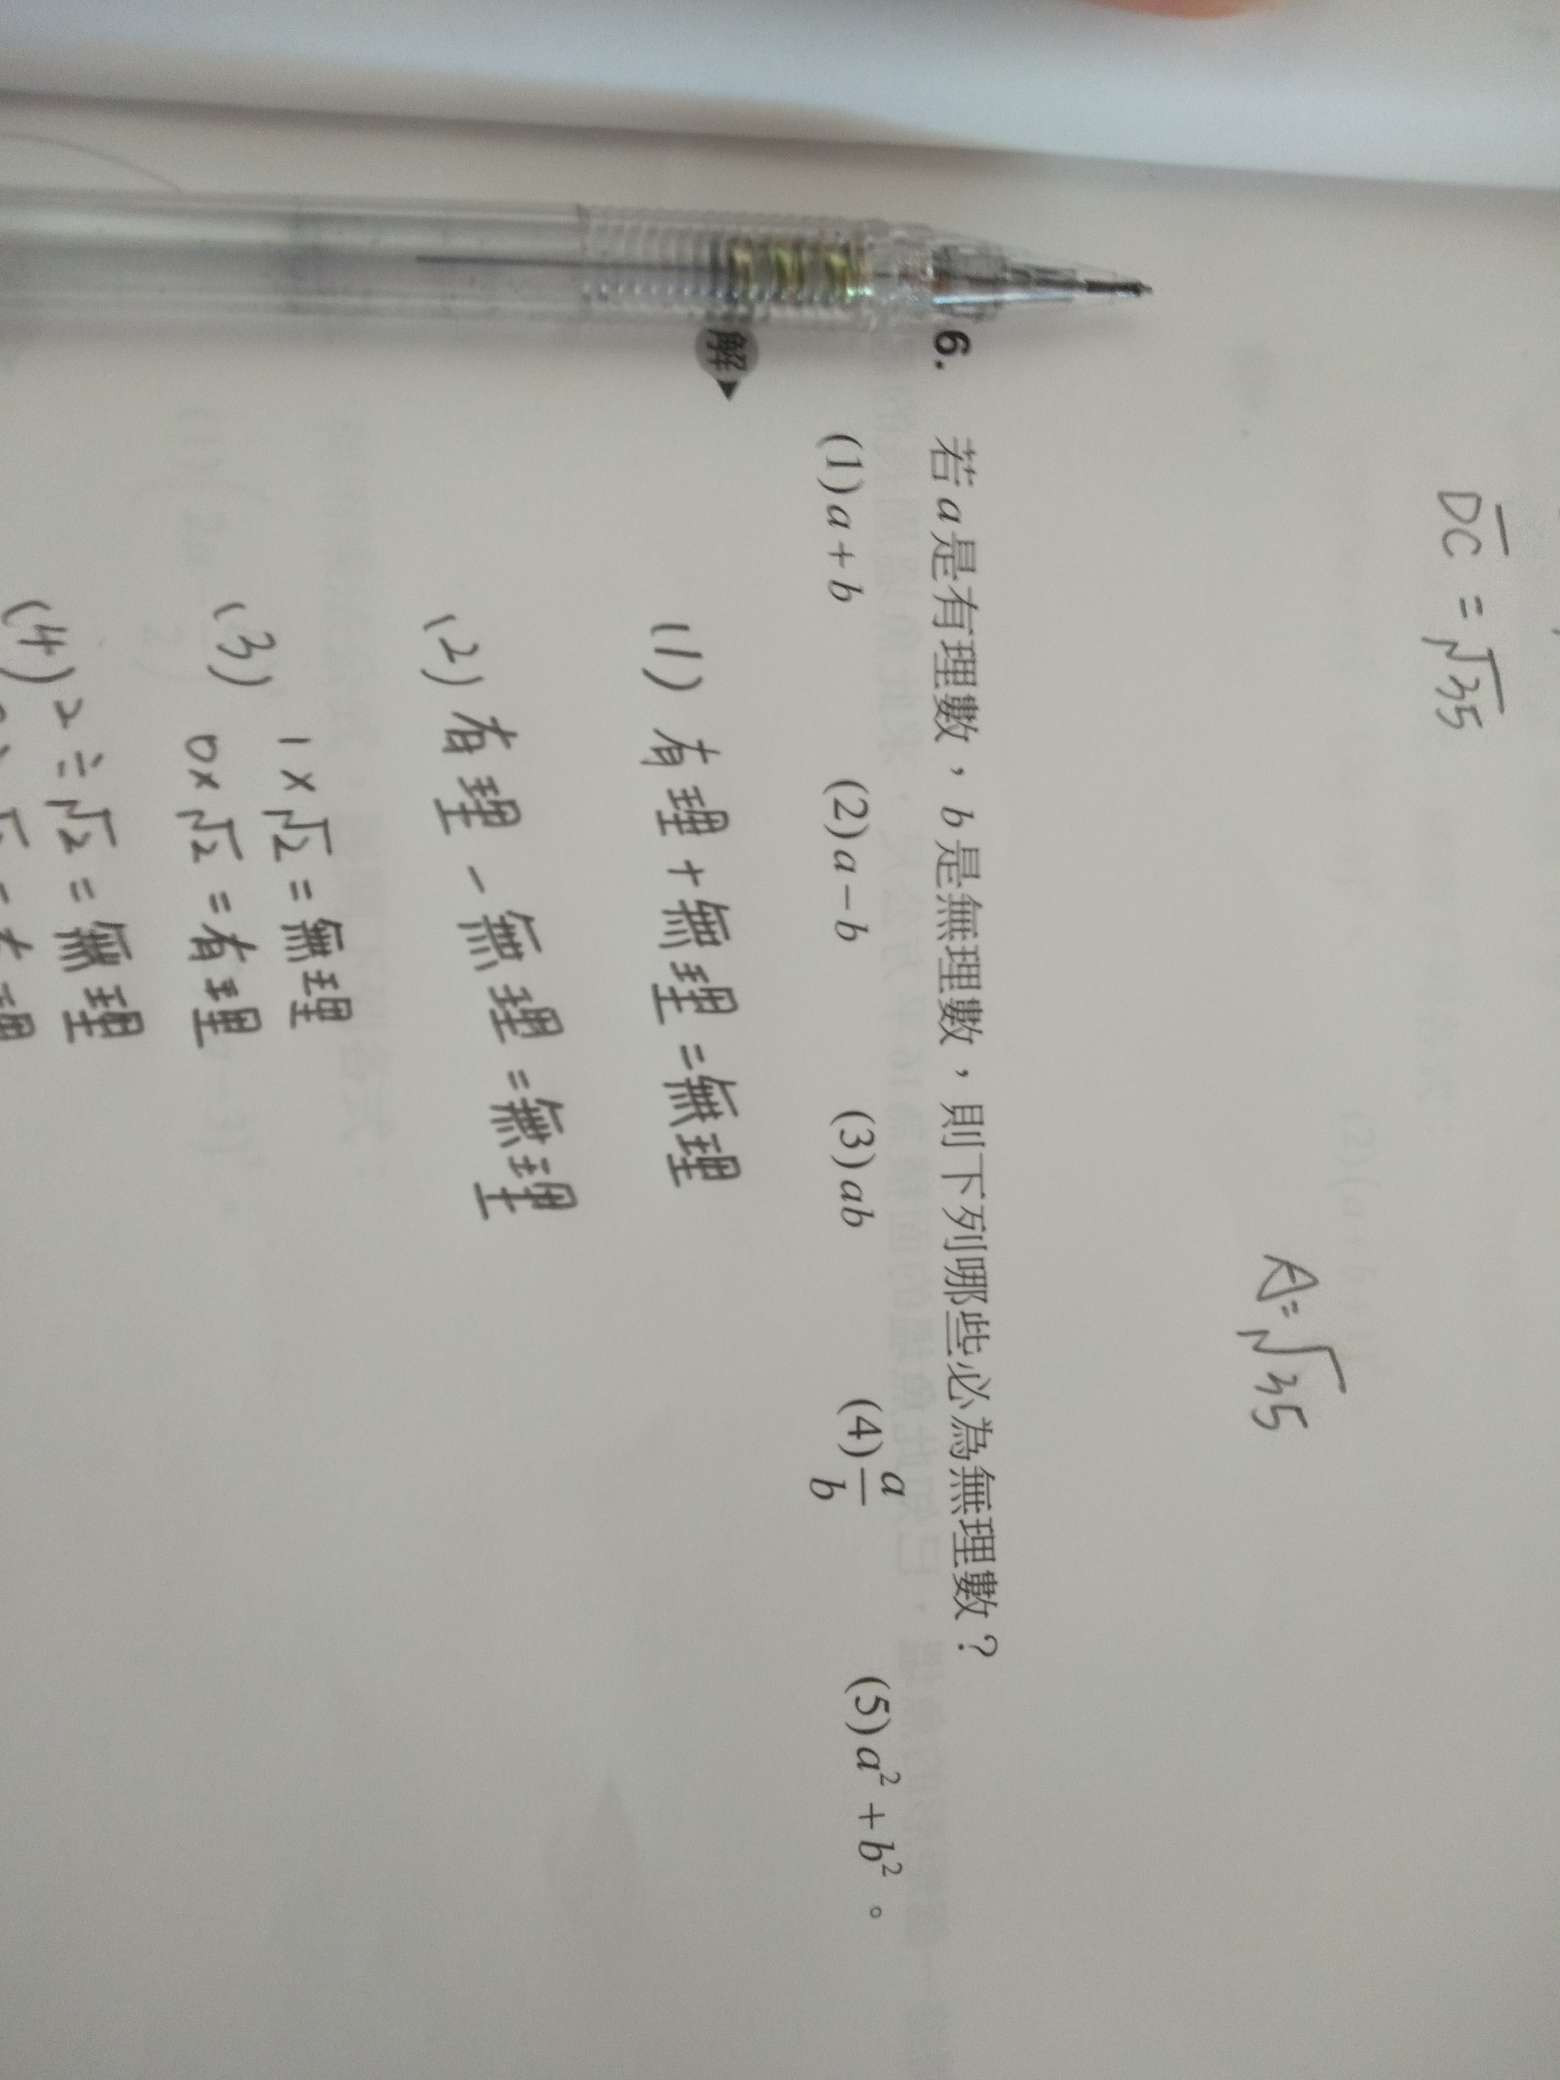 DC = √35
A = √35
6. 若a是有理數，b是無理數，則下列哪些必為無理數？
(1)a+b (2)a−b (3)ab (4)a/b (5)a²+b²。
解
(1) 有理+無理=無理
(2) 有理－無理=無理
(3) 1×√2=無理
0×√2=有理
(4) 2÷√2=無理